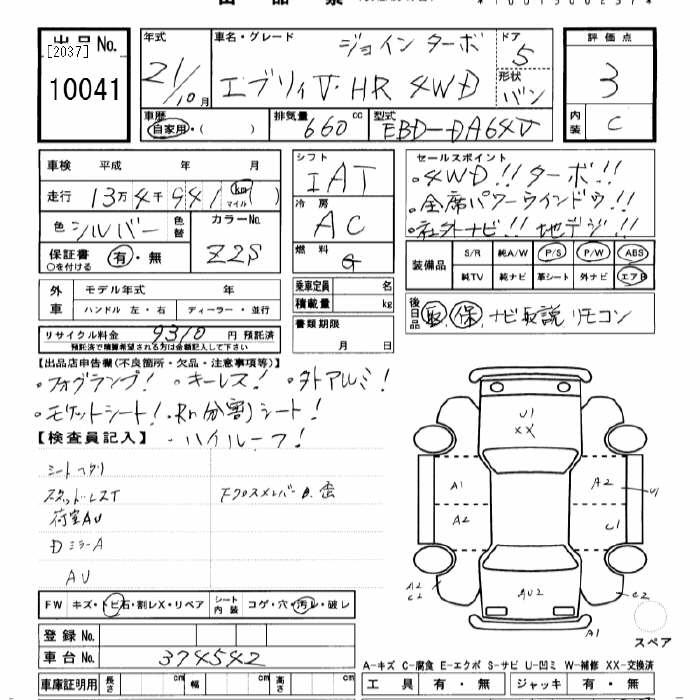 出品No.
[2037]
10041
年式
21/10月
車名・グレード
ジョイン ターボ
エブリィV・HR 4WD
ドア
5
形状
バン
評価点
3
内装
C
車歴
自家用・( )
排気量
660 cc
型式
EBD-DA64V
車検 平成 年 月
走行 13万4千941 km マイル ( )
色 シルバー
色替
カラーNo.
Z2S
保証書
○を付ける
有・無
シフト
IAT
冷房
AC
燃料
G
乗車定員 名
積載量 kg
書類期限
月 日
セールスポイント
・4WD!! ターボ!!
・全席パワーウインドウ!!
・社外ナビ!! 地デジ!!
装備品
S/R 純A/W P/S P/W ABS
純TV 純ナビ 革シート 外ナビ エアB
後日品
取 保 ナビ取説 リモコン
外車
モデル年式 年
ハンドル 左・右 ディーラー・並行
リサイクル料金 9310 円 預託済
預託済で積算希望される方は金額記入して下さい
【出品店申告欄(不良箇所・欠品・注意事項等)】
・フォグランプ! ・キーレス! ・外アルミ!
・モケットシート! ・Rr分割シート!
・ハイルーフ!
【検査員記入】
シートヘタリ
スタッドレスT
荷室AU
Dミラ-A
AU
FクロスメンバーB.歪
U1
XX
A1
A2
A2
U1
C1
A2
C2
AU2
C2
A1
スペア
FW キズ・トビ石・割レX・リペア
シート内装
コゲ・穴・汚レ・破レ
登録No.
車台No. 374542
車庫証明用 長さ cm 幅 cm 高さ cm
A-キズ C-腐食 E-エクボ S-サビ U-凹ミ W-補修 XX-交換済
工具 有・無 ジャッキ 有・無